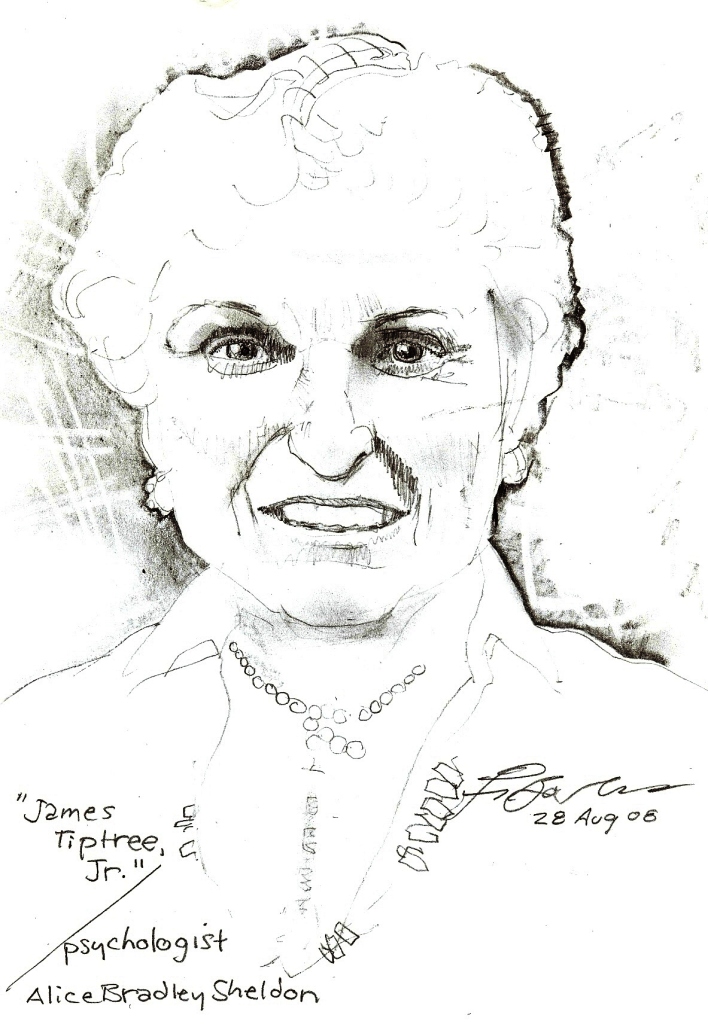 "James
Tiptree,
Jr."
psychologist
Alice Bradley Sheldon
28 Aug 08